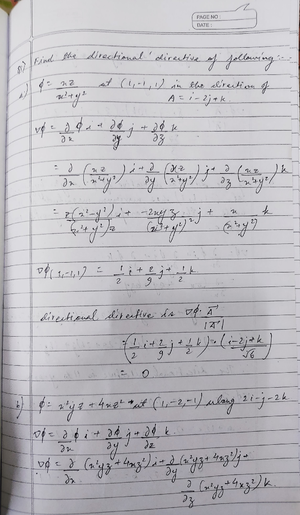 PAGE NO :
DATE :
Q) Find the directional directive of following :-
a) φ = xz / x²+y² at (1,-1,1) in the direction of
A = i-2j+k
∇φ = ∂/∂x φ i + ∂φ/∂y j + ∂φ/∂z k
= ∂/∂x (xz/x²+y²) i + ∂/∂y (xz/x²+y²) j + ∂/∂z (xz/x²+y²) k
= z(x²-y²)/(x²+y²)² i + -2xyz/(x²+y²)² j + x/(x²+y²) k
∇φ(1,-1,1) = 1/2 i + 2/9 j + 1/2 k
directional directive is ∇φ · A/|A|
= (1/2 i + 2/9 j + 1/2 k) · (i-2j+k/√6)
= 0
b) φ = x²yz + 4xz² at (1,-2,-1) along 2i-j-2k
∇φ = ∂/∂x φ i + ∂φ/∂y j + ∂φ/∂z k
∇φ = ∂/∂x (x²yz+4xz²) i + ∂/∂y (x²yz+4xz²) j +
∂/∂z (x²yz+4xz²) k